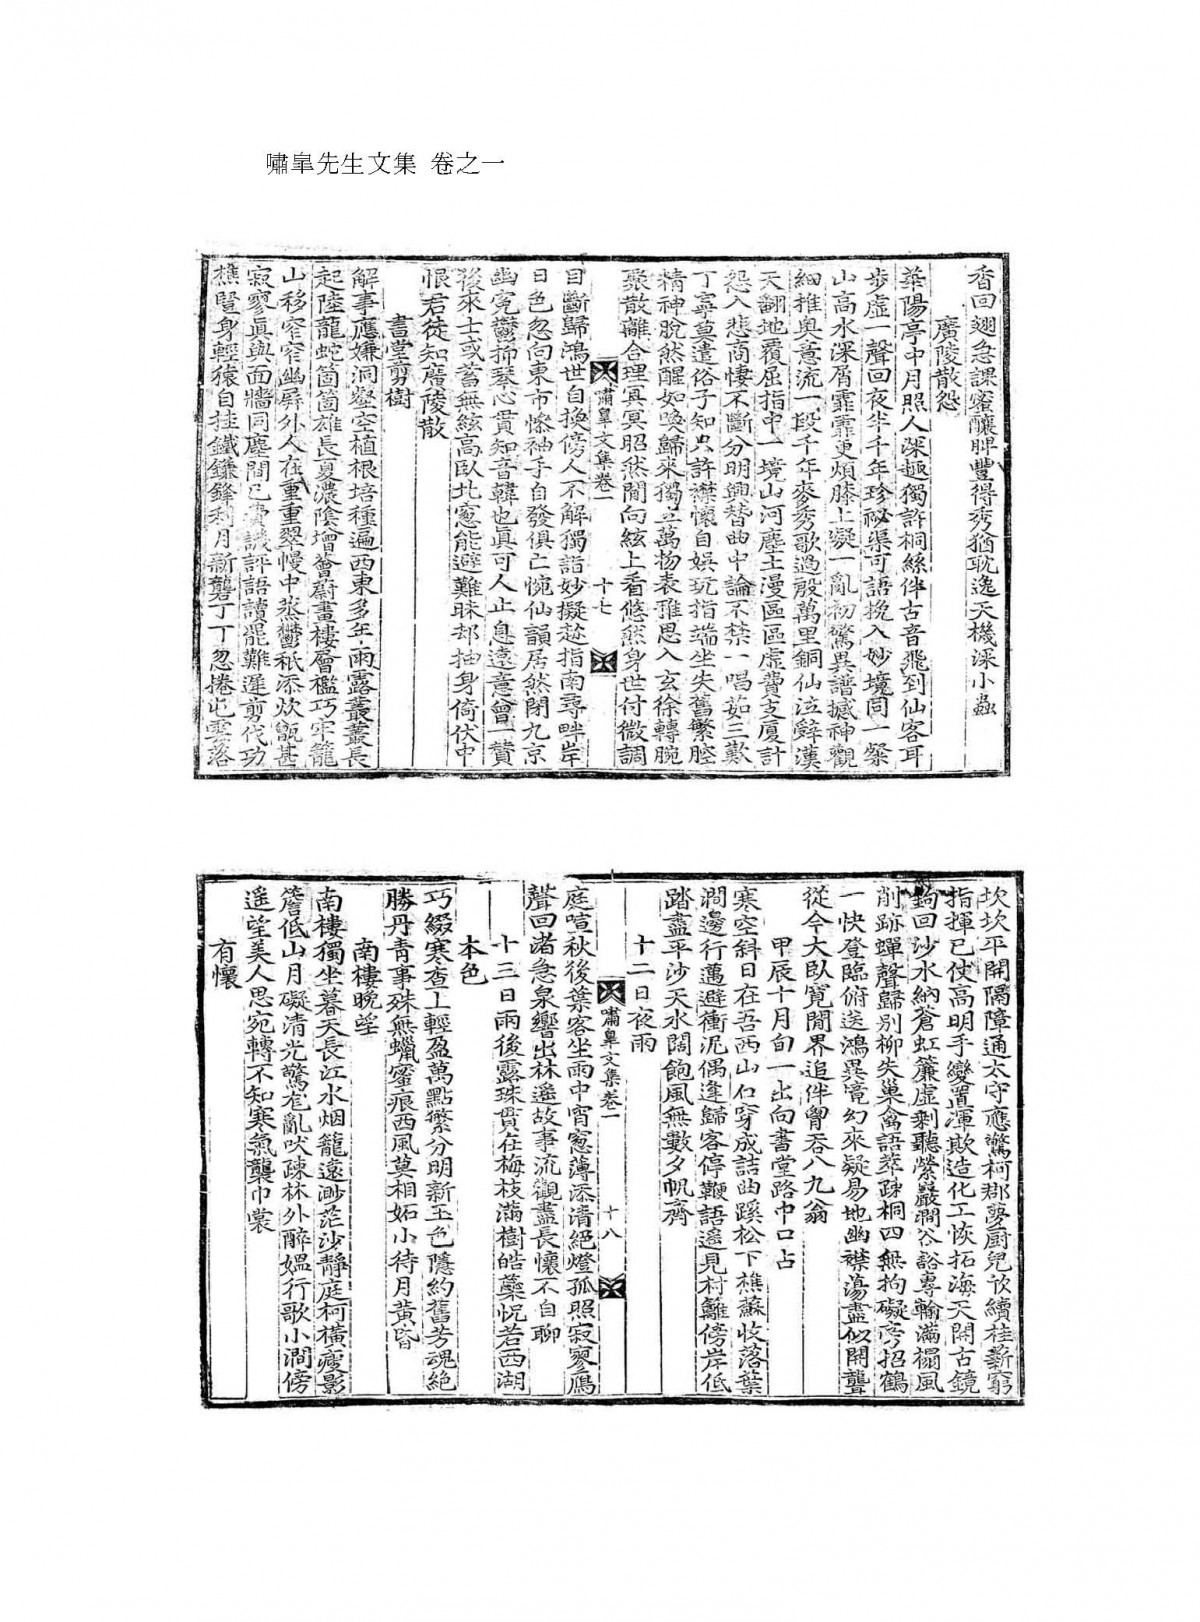 嘯皐先生文集 卷之一
香回翅急課蜜釀脾豐得秀猶耽逸天機深小蟲
廣陵散怨
華陽亭中月照人深趣獨許桐絲伴古音飛到仙客耳
步虛一聲回夜半千年珍祕渠可語挽入妙境同一粲
山高水深屑霏霏更煩膝上凝一亂初驚異譜撼神觀
細推奧意流一段千年麥秀歌過殷萬里銅仙泣辭漢
天翻地覆屈指中一境山河塵土漫區區虛費支廈計
怨入悲商悽不斷分明興替曲中論不禁一唱茹三歎
丁寧莫遣俗子知只許襟懷自娛玩指端坐失舊繁腔
精神脫然醒如喚歸來獨立萬物表雅思入玄徐轉腕
聚散離合理冥冥昭然閒向絃上看悠然身世付微調
嘯皐文集卷一 十七
目斷歸鴻世自換傍人不解獨詣妙擬趂指南尋畔岸
日色忽向東市慘袖手自發俱亡惋仙韻居然閉九京
幽寃鬱抑琴心貫知音韓也眞可人止息遠意曾一贊
後來士或蓄無絃高臥北窓能避難昧却抽身倚伏中
恨君徒知廣陵散
書堂剪樹
解事應嫌洞壑空植根培種遍西東多年雨露叢叢長
起陸龍蛇箇箇雄長夏濃陰增薈蔚畫樓層檻巧牢籠
山移窄窄幽屛外人在重重翠幔中蒸鬱秪添炊甑甚
寂寥眞與面牆同塵間已費譏評語讀罷難遲剪伐功
樵豎身輕猿自挂鐵鎌鋒利月新礱丁丁忽捲屯雲落
坎坎平開隔障通太守應驚柯郡夢厨兒欣續桂薪窮
指揮已使高明手變置渾欺造化工恢拓海天開古鏡
鉤回沙水納蒼虹簾虛剩聽縈巖澗谷豁專輸滿榻風
削跡蟬聲歸別柳失巢禽語萃疎桐四無拘礙亭招鶴
一快登臨俯送鴻異境幻來疑易地幽襟蕩盡似開聾
從今大臥寬閒界追伴曾吞八九翁
甲辰十月旬一出向書堂路中口占
寒空斜日在吾西山石穿成詰曲蹊松下樵蘇收落葉
澗邊行邁避衝泥偶逢歸客停鞭語遙見村籬傍岸低
踏盡平沙天水闊飽風無數夕帆齊
十二日夜雨
嘯皐文集卷一 十八
庭喧秋後葉客坐雨中宵窓薄添淸絕燈孤照寂寥鴈
聲回渚急泉響出林遙故事流觀盡長懷不自聊
十三日雨後露珠貫在梅枝滿樹皓藥怳若西湖
本色
巧綴寒查上輕盈萬點繁分明新玉色隱約舊芳魂絕
勝丹靑事殊無蠟蜜痕西風莫相妬小待月黃昏
南樓晩望
南樓獨坐暮天長江水烟籠遠渺茫沙靜庭柯橫瘦影
簷低山月礙淸光驚尨亂吠疎林外醉媼行歌小澗傍
遙望美人思宛轉不知寒氣襲巾裳
有懷